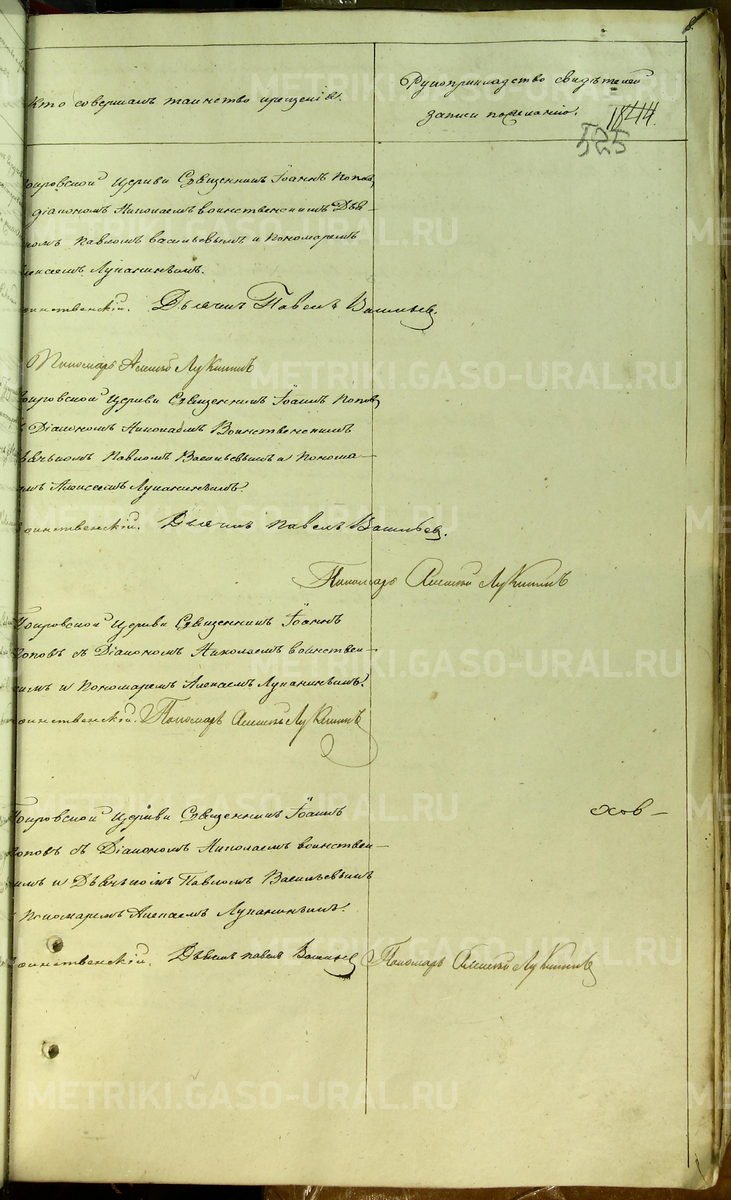 8.
Кто совершалъ таинство крещенія.
Рукоприкладство свидѣтелей
записи по желанію.
1844.
525
Покровской Церкви Священникъ Іоаннъ Попов
діакономъ Николаемъ воинственскимъ Дья-
комъ Павломъ васильевымъ и Пономаремъ
Лукинымъ.
воинственскій. Дьячекъ Павелъ Васильев.
Пономарь Алексѣй Лукинъ
Покровской Церкви Священникъ Іоаннъ Попов
Діакономъ Николаемъ Воинственскимъ
Павломъ Васильевымъ и Понома-
Алексеемъ
воинственскій. Дьячекъ Павелъ Васильев.
Пономарь Алексѣй
Покровской Церкви Священникъ Іоаннъ
Поповъ съ Діакономъ Николаемъ воинствен-
скимъ и Пономаремъ
воинственскій. Пономарь Алексѣй
Покровской Церкви Священникъ Іоаннъ
Поповъ съ Діакономъ Николаемъ воинствен-
скимъ и Павломъ Васильевымъ
Пономаремъ
воинственскій. Павелъ Васильев Пономарь Алексѣй
METRIKI.GASO-URAL.RU